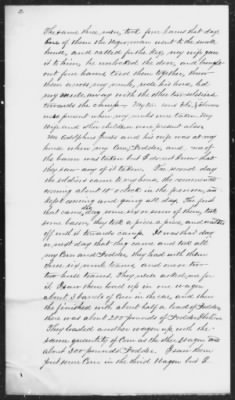 2
The same three men, took four hams that day
One of them the Negro man went to the smoke
house, and called for the Key, my wife gave
it to him, he unlocked the door, and brought
out four hams tied them together, threw
them across my mule, rode his horse, led
my mule, away with the other two soldiers
towards the Camp. My son
was present when my mule was taken My
wife and other children were present also
and his wife was at my
house when my Corn, Fodder, and some of
the bacon was taken but I do not know that
they saw any of it taken. The second day
the soldiers came to my house, they commenced
coming about 10 o'clock in the forenoon, and
kept coming and going all day. The first
that came, that day some six or seven of them, took
some bacon, they took a piece a piece, and went
off with it towards camp. It was that day
or next day that they came and took all
my Corn and Fodder, they had with them
three six mule teams and one or two
two horse teams. They never asked me for
it. I saw them load up in one wagon
about 5 barrels of Corn in the ear, and then
they finished with about half a load of Fodder,
there was about 200 pounds of Fodder
They loaded another wagon up with the
same quantity of Corn as the other Wagon and
about 300 pounds Fodder. I saw them
put some Corn in the third Wagon but I